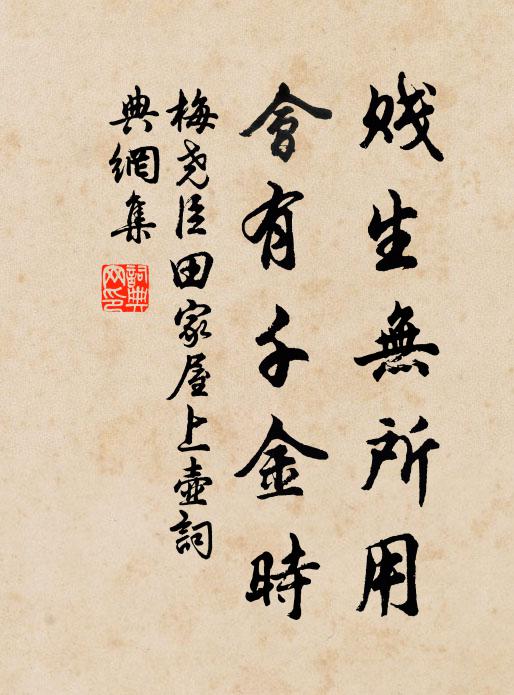 賤生無所用
會有千金時
梅堯臣田家屋上壺詞
典網集
詞典
网印